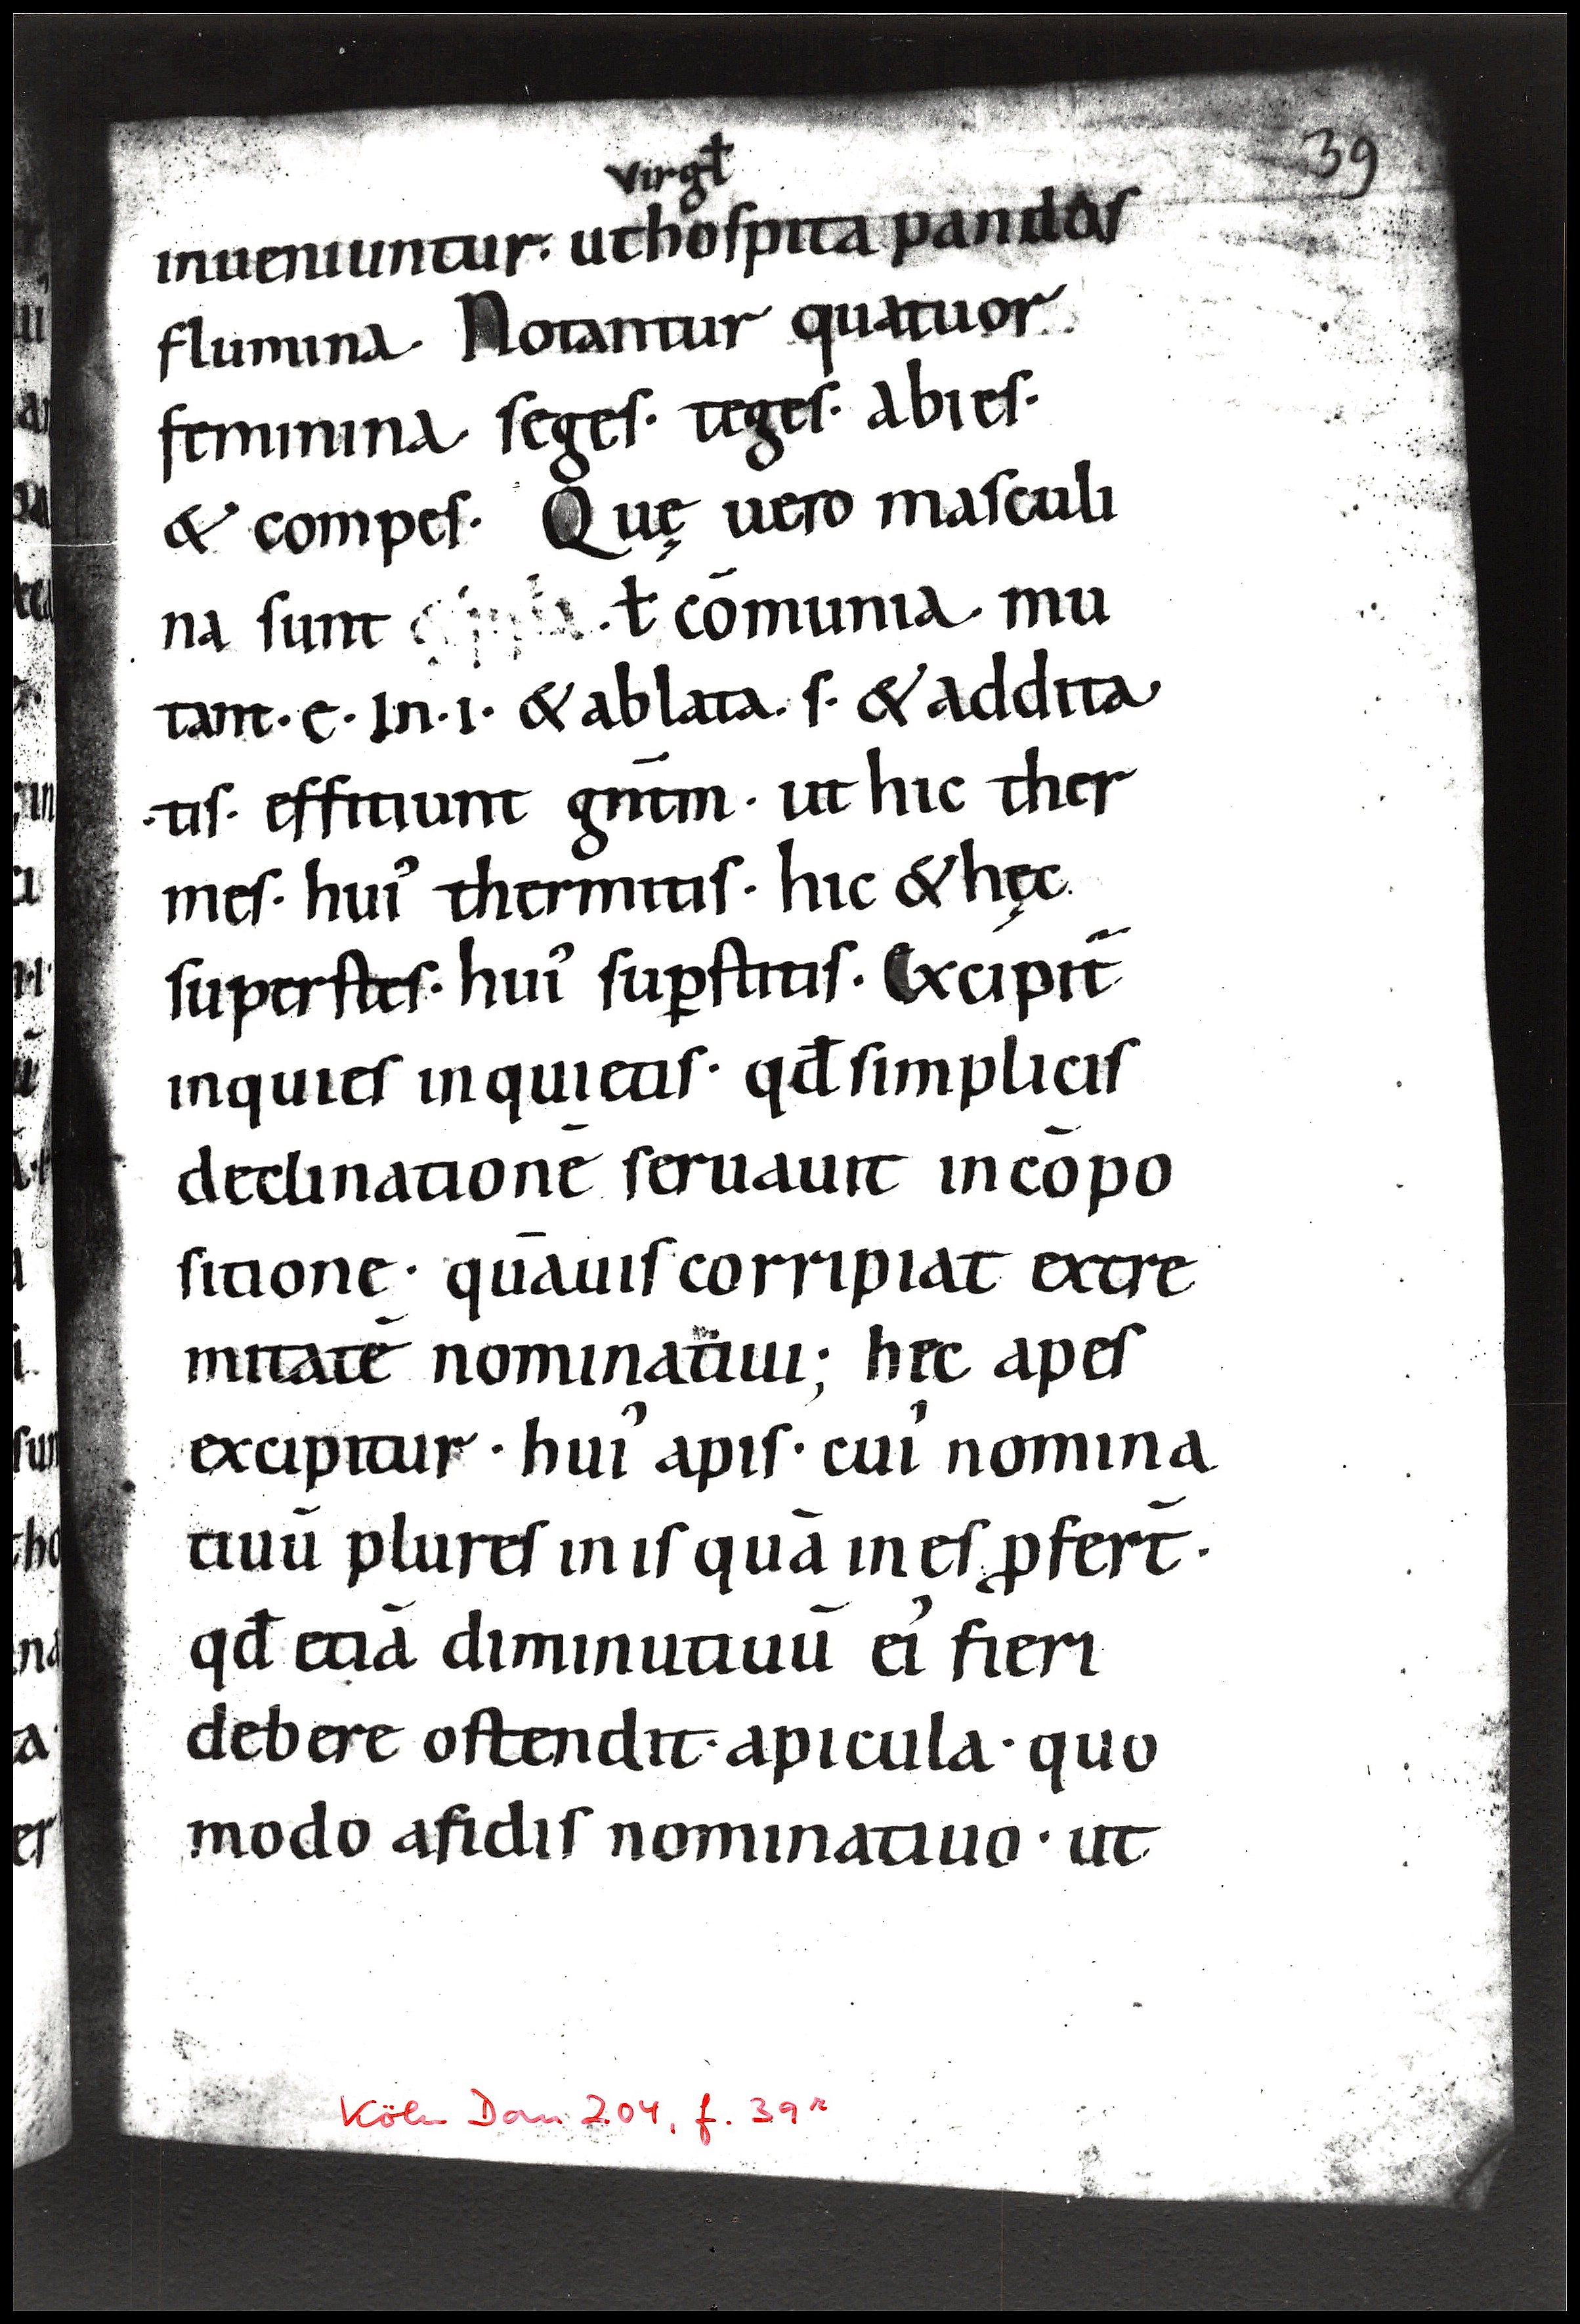 39
virgł
inueniuntur· ut hospita pandas
flumina· Notantur quatuor
feminina· seges· teges· abies·
& compes· Quę uero masculi
na sunt ·ł cōmunia· mu
tant·e·In·i· & ablata·s· & addita
·tis· effitiunt gn̄tm· ut hic ther
mes· hui᾿ thermitis· hic & hęc
superstes· hui᾿ suꝑstitis· Excipit̃
inquies inquietis· qđ simplicis
declinationē seruauit incōpo
sitione· quāuis corripiat extre
mitatē nominatiui; hec apes
excipitur· hui᾿ apis· cui᾿ nomina
tiuū plures in is quā in es ꝓfert̄·
qđ etiā diminutiuū ei᾿ fieri
debere ostendit· apicula· quo
modo afidis nominatiuo· ut
Köln Dom 204, f. 39r